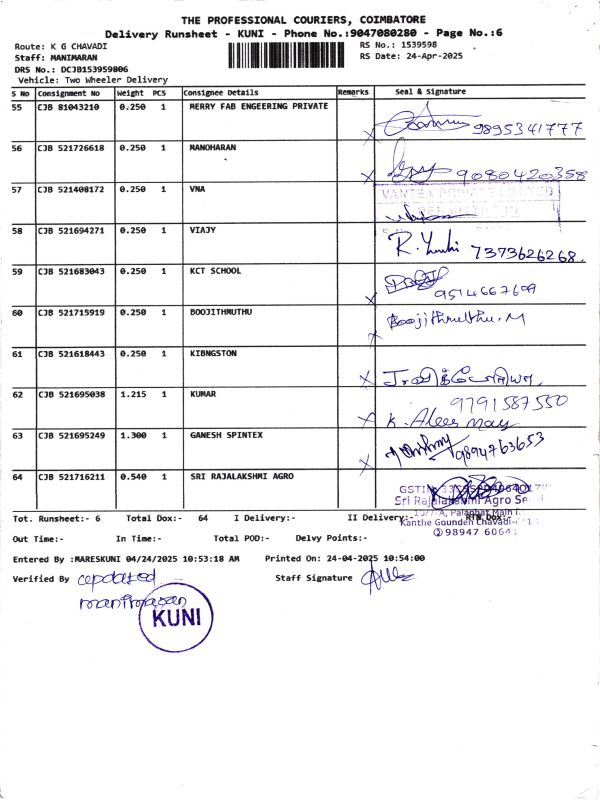 THE PROFESSIONAL COURIERS, COIMBATORE
Delivery Runsheet - KUNI - Phone No.:9047080280 - Page No.:6
Route: K G CHAVADI RS No.: 1539598
Staff: MANIMARAN RS Date: 24-Apr-2025
DRS No.: DCJB153959806
Vehicle: Two Wheeler Delivery
S No Consignment No Weight PCS Consignee Details Remarks Seal & Signature
55 CJB 81043210 0.250 1 MERRY FAB ENGEERING PRIVATE
X 9895341777
56 CJB 521726618 0.250 1 MANOHARAN
X 9080420358
57 CJB 521408172 0.250 1 VNA
58 CJB 521694271 0.250 1 VIAJY
7373626268.
59 CJB 521683043 0.250 1 KCT SCHOOL
X 9514667699
60 CJB 521715919 0.250 1 BOOJITHMUTHU
X Boojithmuthu.M
61 CJB 521618443 0.250 1 KIBNGSTON
X
62 CJB 521695038 1.215 1 KUMAR
9791587550
X K.
63 CJB 521695249 1.300 1 GANESH SPINTEX
X 9894763653
64 CJB 521716211 0.540 1 SRI RAJALAKSHMI AGRO
GSTIN
Sri Rajalakshmi Agro
10/7-A, Palghat Main
Kanthe Gounden Chavadi
98947 60641
Tot. Runsheet:- 6 Total Dox:- 64 I Delivery:- II Delivery:- RTN Dox:-
Out Time:- In Time:- Total POD:- Delvy Points:-
Entered By :MARESKUNI 04/24/2025 10:53:18 AM Printed On: 24-04-2025 10:54:00
Verified By updated Staff Signature
manimaran
KUNI